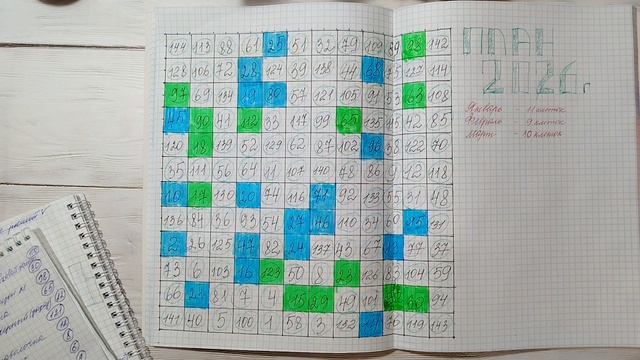 144 113 88 61 25 51 32 79 109 89 142
ПЛАН
2026г
128 106 72 28 124 39 138 44 68 75 114
97 69 134 19 80 57 121 105 91 53 63 108
Январь - 11 клеток
Февраль - 9 клеток
Март - 10 клеток
45 90 41 112 33 117 99 65 135 42 85
120 18 139 52 129 62 87 102 38 122 70
35 111 56 64 11 107 140 78 86 9 12 118
10 17 130 20 74 116 92 133 55 31 48
136 84 36 93 54 27 46 110 34 60
2 26 125 47 82 24 137 43 67 77 37
73 6 103 16 123 50 8 23 126 83 104 59
66 21 81 7 4 15 29 49 101 94
141 40 5 100 1 58 3 132 14 76 119 143